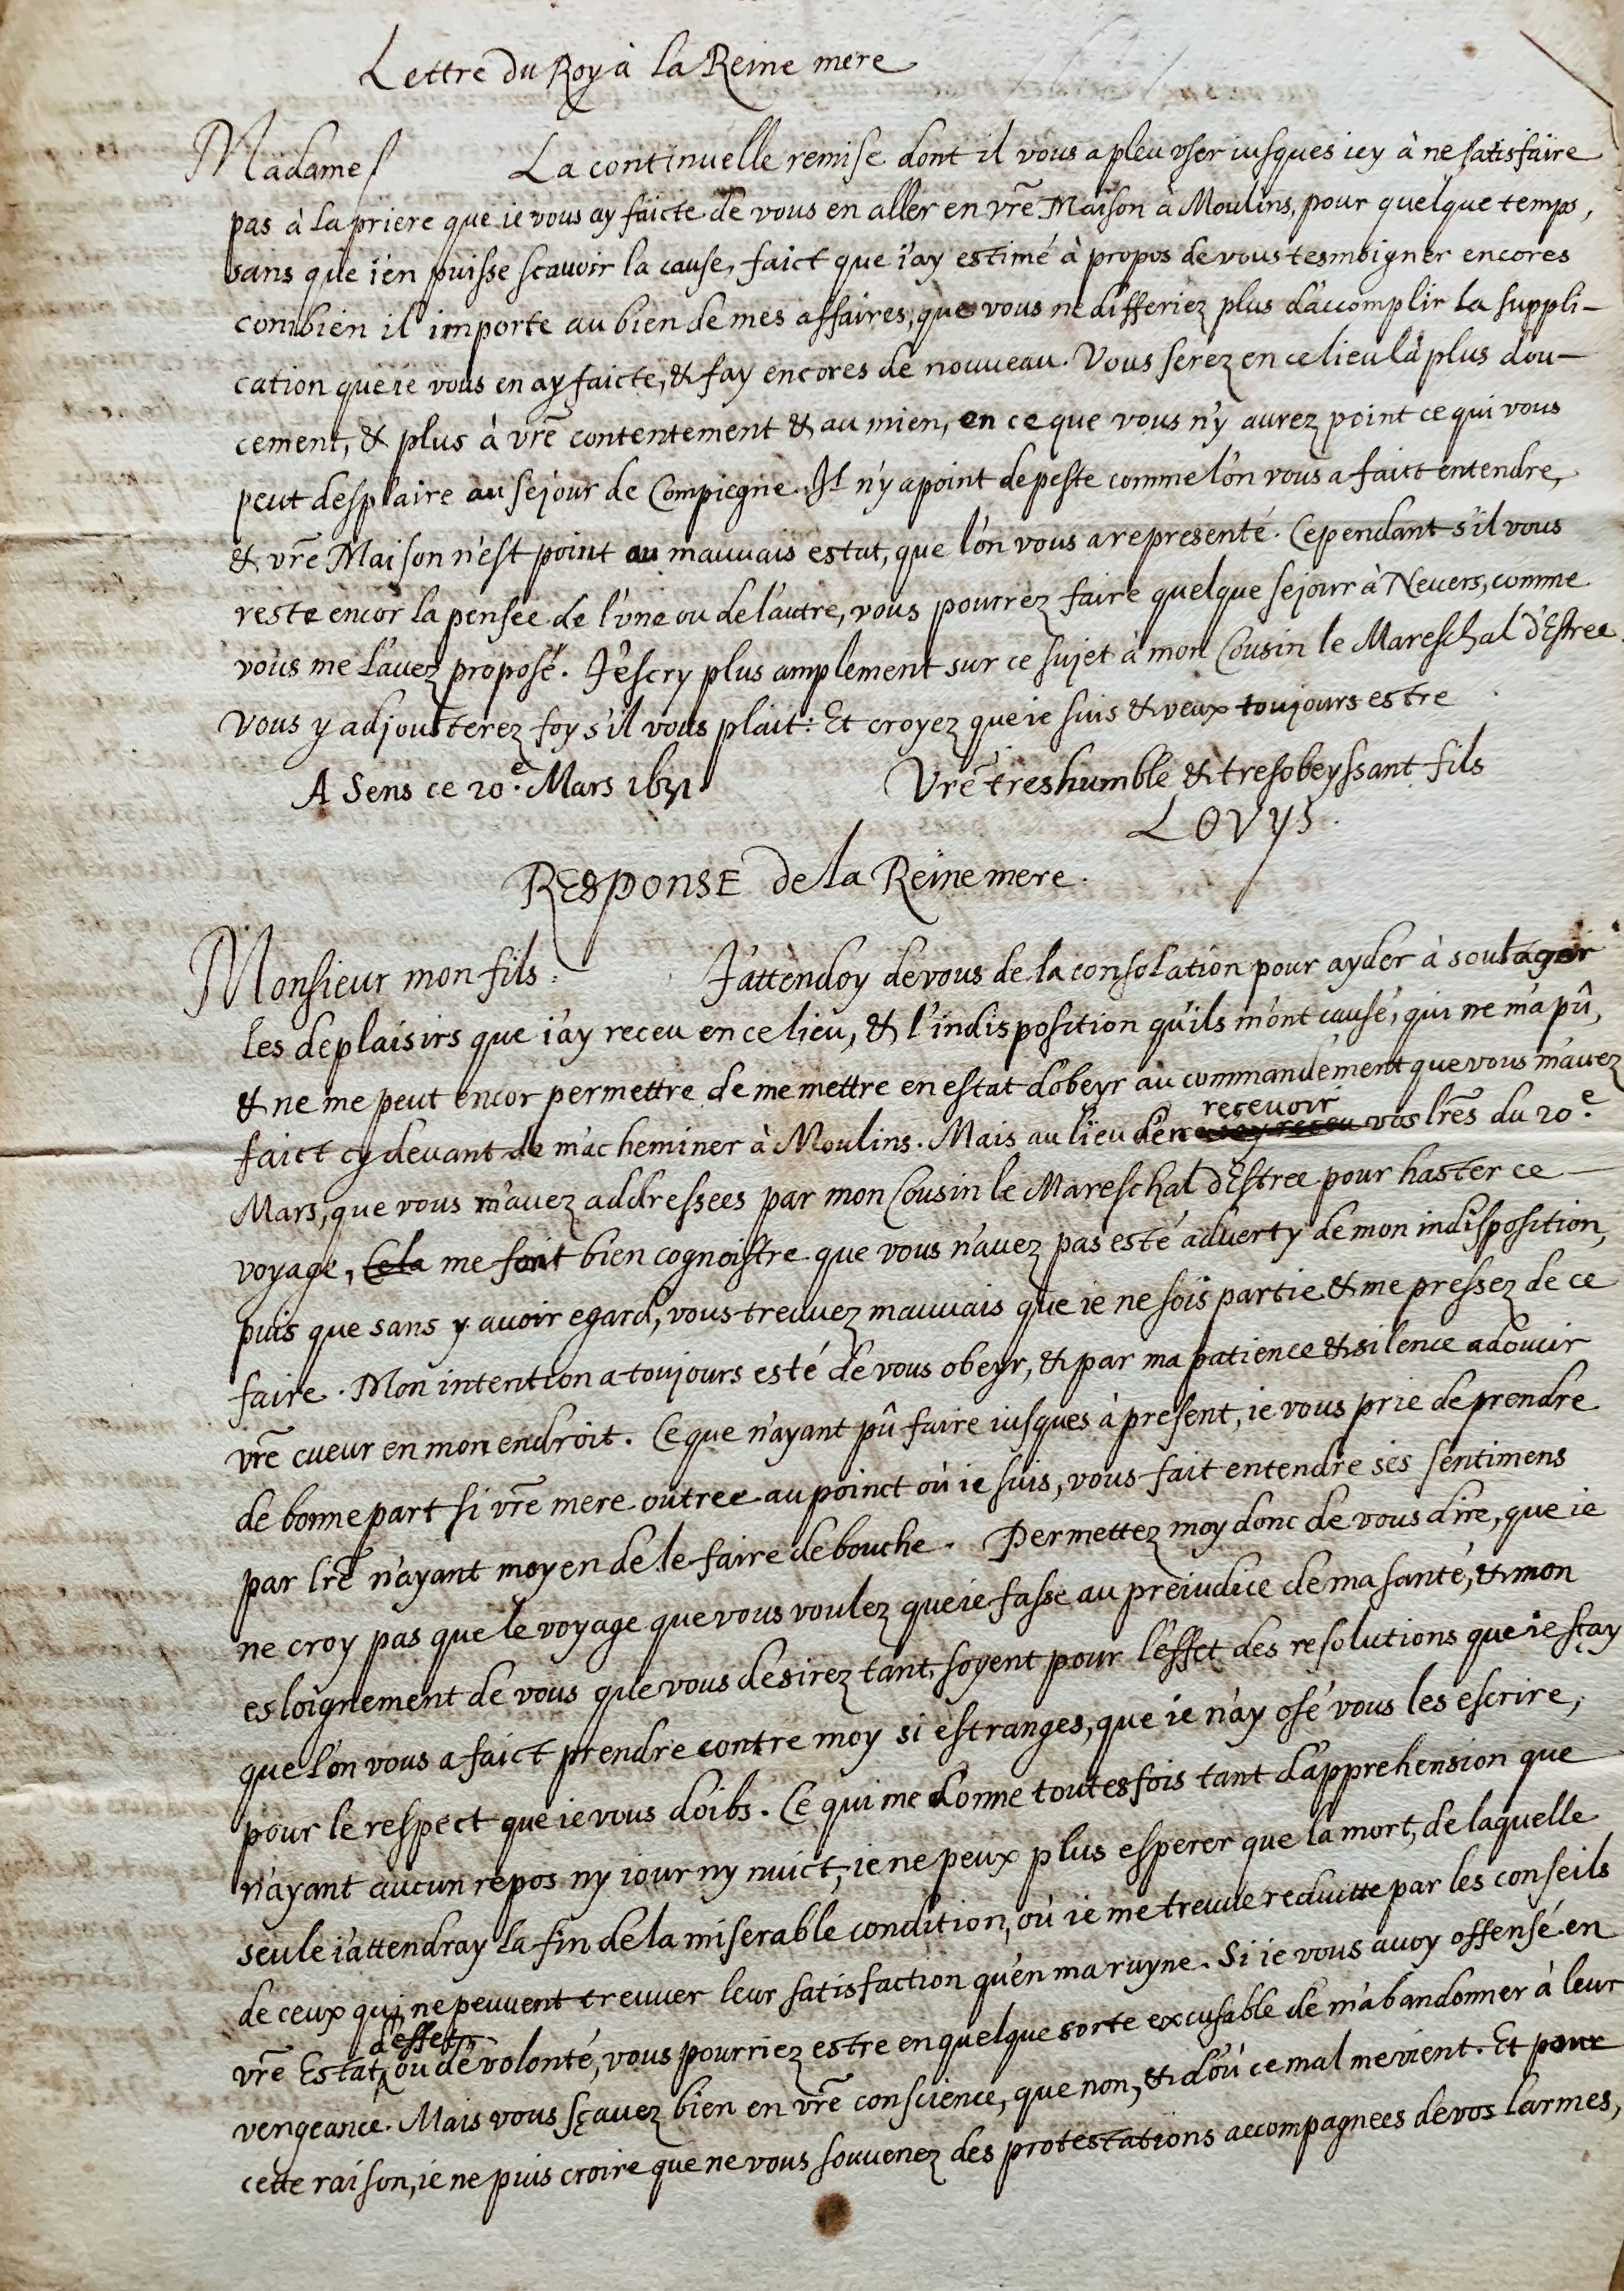 Lettre du Roy à la Reine mere
Madame/ La continuelle remise dont il vous a pleu vser iusques icy à ne satisfaire
pas à la priere que ie vous ay faicte de vous en aller en vr̃e Maison à Moulins, pour quelque temps,
sans que i'en puisse scauoir la cause, faict que i'ay estimé à propos de vous tesmoigner encores
combien il importe au bien de mes affaires, que vous ne differiez plus d'accomplir la suppli-
cation que ie vous en ay faicte, & fay encores de nouueau. Vous serez en ce lieu là plus dou-
cement, & plus à vr̃e contentement & au mien, en ce que vous n'y aurez point ce qui vous
peut desplaire au sejour de Compiegne. Il n'y a point de peste comme l'on vous a faict entendre,
& vr̃e Maison n'est point au mauuais estat, que l'on vous a representé. Cependant s'il vous
reste encor la pensee de l'vne ou de l'autre, vous pourrez faire quelque sejour à Neuers, comme
vous me l'auez proposé. J'escry plus amplement sur ce sujet à mon Cousin le Mareschal d'Estree.
Vous y adjousterez foy s'il vous plait: Et croyez que ie suis & veux toujours estre
A Sens ce 20.e Mars 1631. Vr̃e tres humble & tresobeyssant fils
LOVYS.
RESPONSE de la Reine mere.
Monsieur mon fils: J'attendoy de vous de la consolation pour ayder à soulager
les deplaisirs que i'ay receu en ce lieu, & l'indisposition qu'ils m'ont causé, qui ne m'a pû,
& ne me peut encor permettre de me mettre en estat d'obeyr au commandement que vous m'auez
faict cy deuant de m'acheminer à Moulins. Mais au lieu d'en recevoir vos lr̃es du 20.e
Mars, que vous m'auez addressees par mon Cousin le Mareschal d'Estree pour haster ce
voyage, Cela me font bien cognoistre que vous n'auez pas esté aduerty de mon indisposition,
puis que sans y auoir egard, vous treuuez mauuais que ie ne sois partie & me pressez de ce
faire. Mon intention a toujours esté de vous obeyr, & par ma patience & silence adoucir
vr̃e cueur en mon endroit. Ce que n'ayant pû faire iusques à present, ie vous prie de prendre
de bonne part si vr̃e mere outree au poinct où ie suis, vous fait entendre ses sentimens
par lr̃e n'ayant moyen de le faire de bouche. Permettez moy donc de vous dire, que ie
ne croy pas que le voyage que vous voulez que ie fasse au preiudice de ma santé, & mon
esloignement de vous que vous desirez tant, soyent pour l'effet des resolutions que ie sçay
que l'on vous a faict prendre contre moy si estranges, que ie n'ay osé vous les escrire,
pour le respect que ie vous doibs. Ce qui me donne toutesfois tant d'apprehension que
n'ayant aucun repos ny iour ny nuict, ie ne peux plus esperer que la mort, de laquelle
seule i'attendray la fin de la miserable condition, où ie me treuue reduitte par les conseils
de ceux qui ne peuuent treuuer leur satisfaction qu'en ma ruyne. Si ie vous auoy offensé en
vr̃e Estat, d'effet, ou de volonté, vous pourriez estre en quelque sorte excusable de m'abandonner à leur
vengeance. Mais vous sçauez bien en vr̃e conscience, que non, & d'où ce mal me vient. Et pour
cette raison, ie ne puis croire que ne vous souuenez des protestations accompagnees de vos larmes,